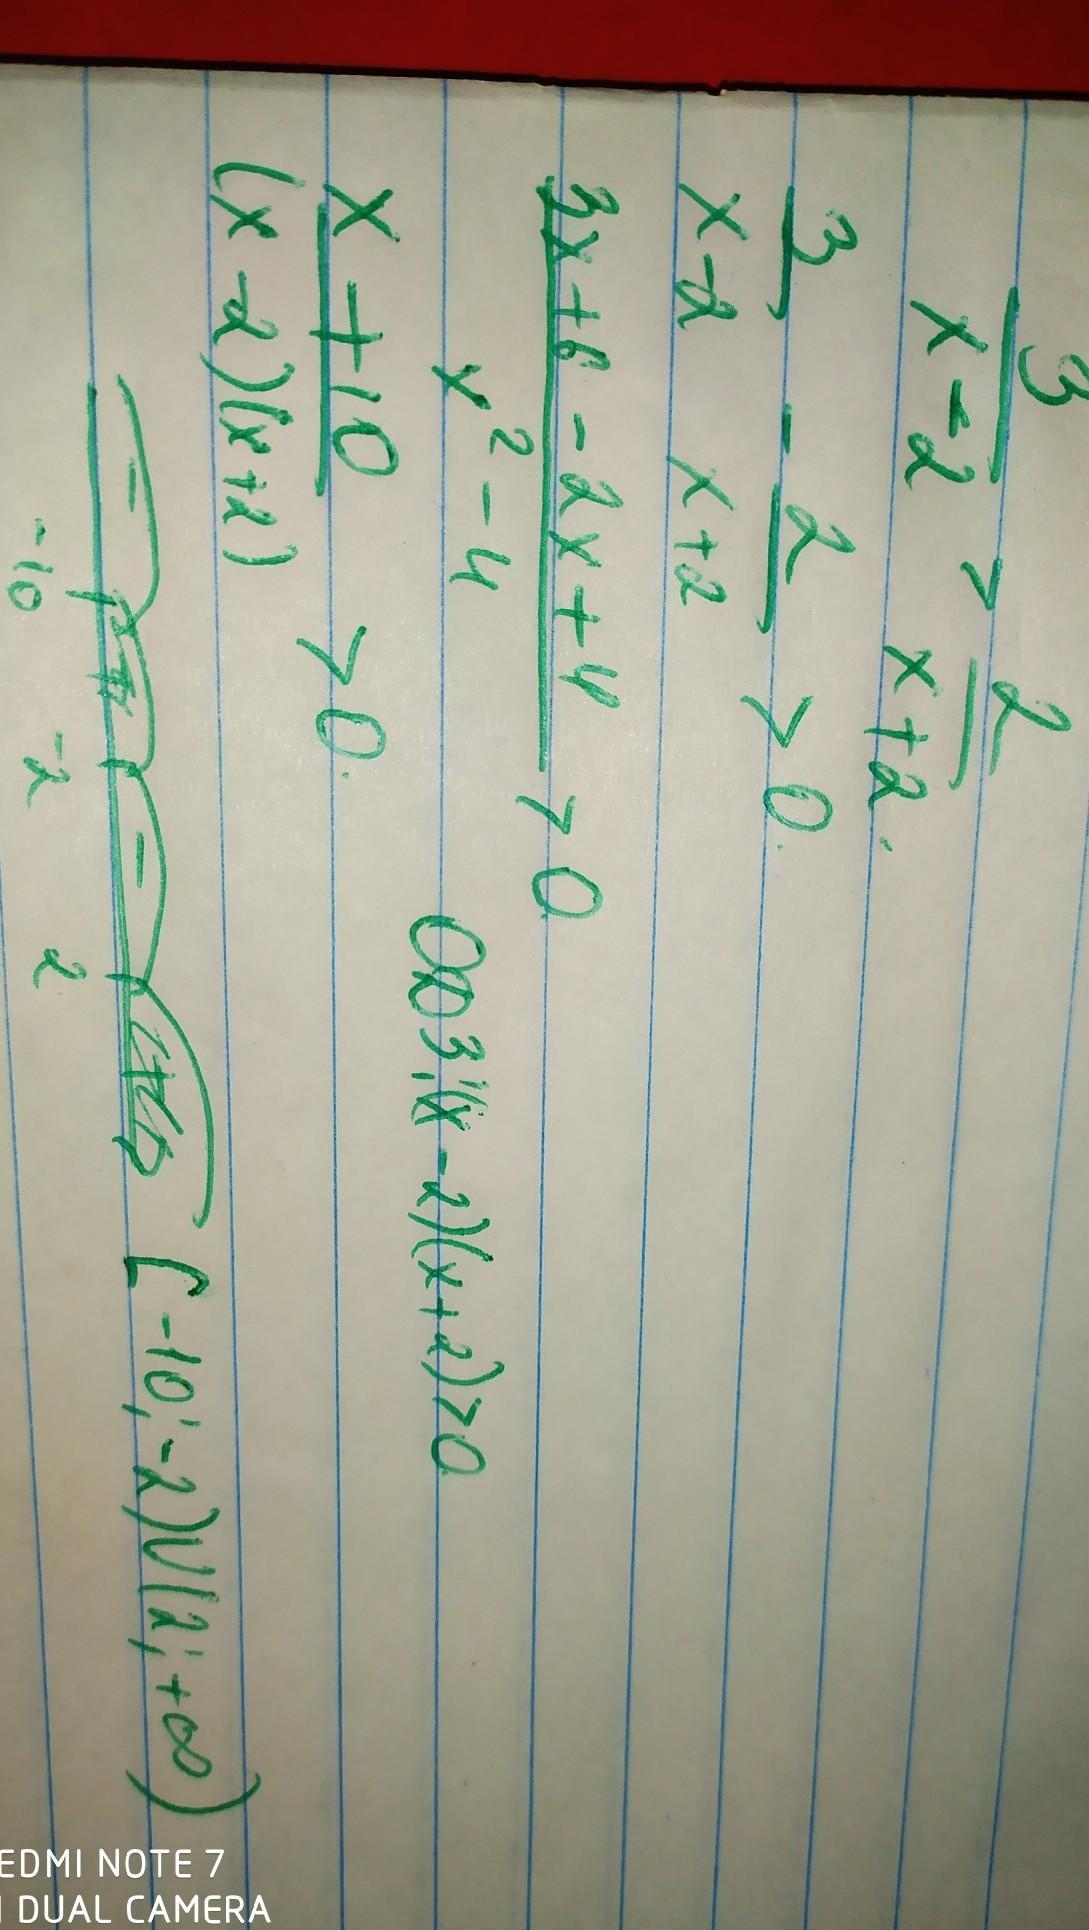 3/(x-2) > 2/(x+2).
3/(x-2) - 2/(x+2) > 0.
(3x+6-2x+4)/(x²-4) > 0
ОДЗ: (x-2)(x+2)>0
(x+10)/((x-2)(x+2)) > 0.
- + - +
-10 -2 2
[-10; -2)∪(2; +∞)
REDMI NOTE 7
AI DUAL CAMERA